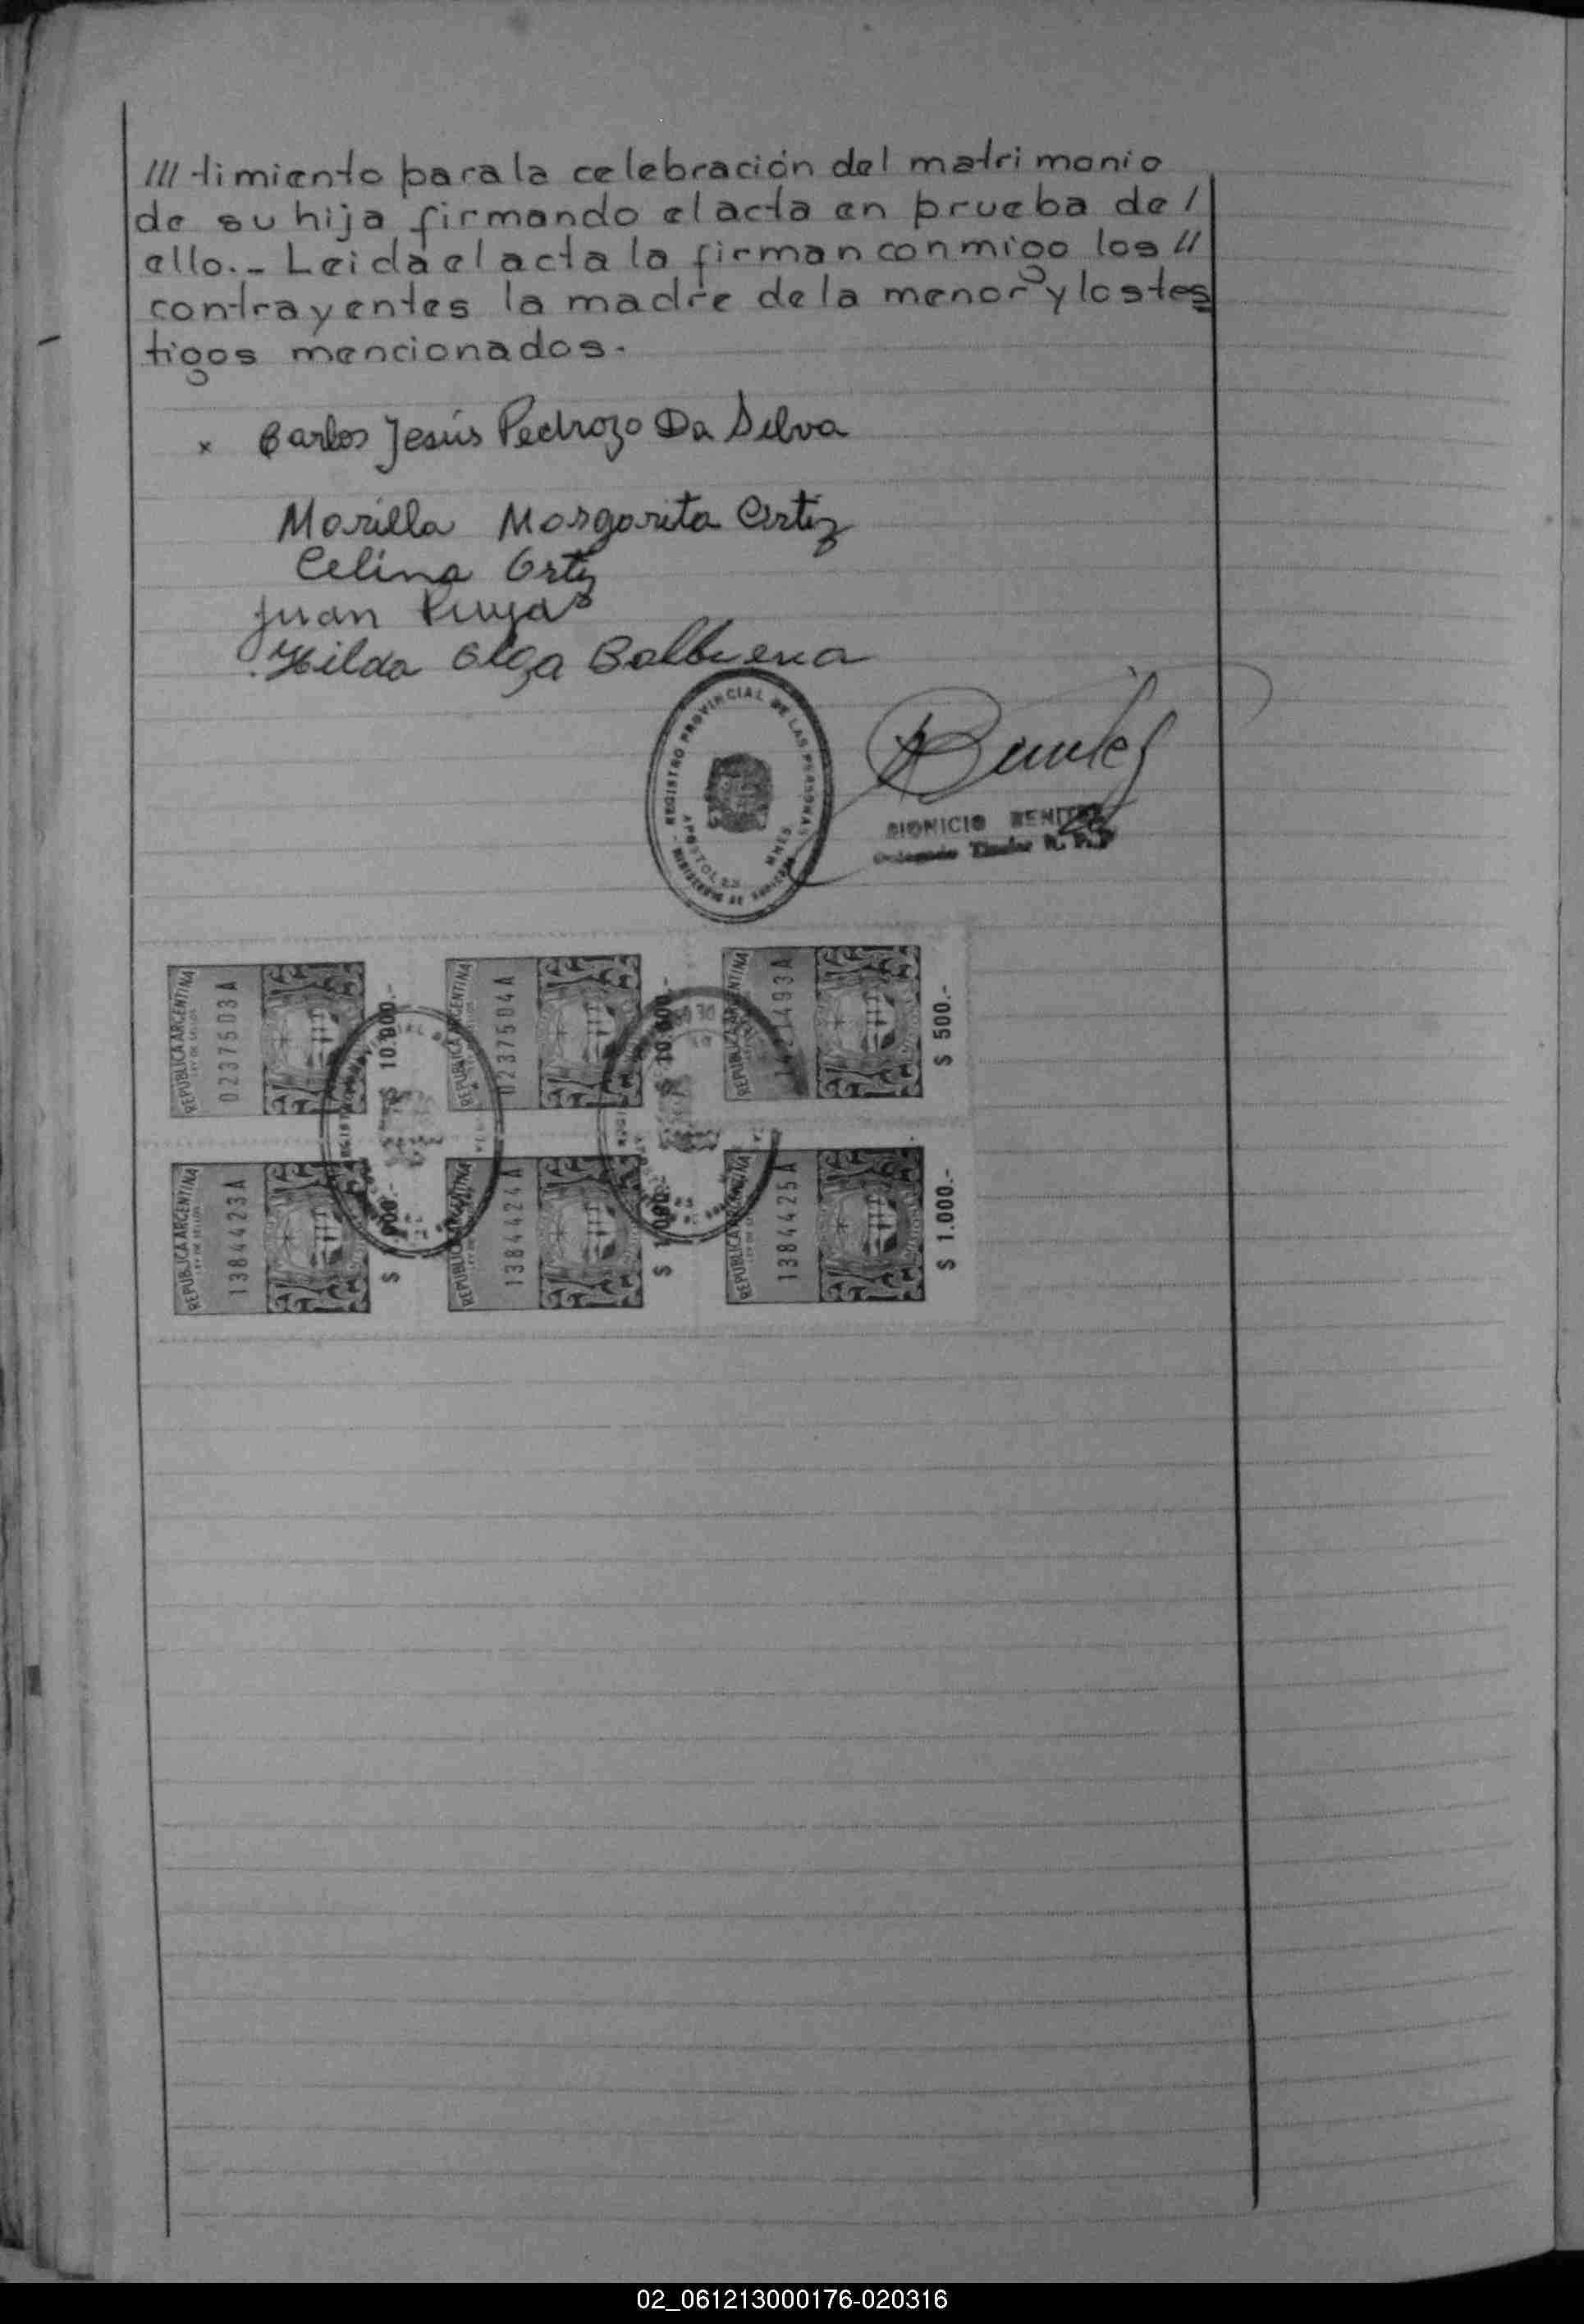 /// timiento para la celebración del matrimonio
de su hija firmando el acta en prueba de /
ello.- Leida el acta la firman conmigo los //
contrayentes la madre de la menor y los tes
tigos mencionados.
x Carlos Jesús Pedrozo Da Silva
Morilla Margarita Ortiz
Celina Ortiz
Juan
Hilda Olga Balbuena
REGISTRO PROVINCIAL DE LAS PERSONAS
APOSTOLES MNES
DIONICIO BENITEZ
Delegado Titular R. P. P
REPUBLICA ARGENTINA
0237503A
$ 10.000.-
REPUBLICA ARGENTINA
0237504A
$ 10.000.-
REPUBLICA ARGENTINA
1493A
$ 500.-
REPUBLICA ARGENTINA
1384423A
$ 1.000.-
REPUBLICA ARGENTINA
1384424A
$ 1.000.-
REPUBLICA ARGENTINA
1384425A
$ 1.000.-
02_061213000176-020316